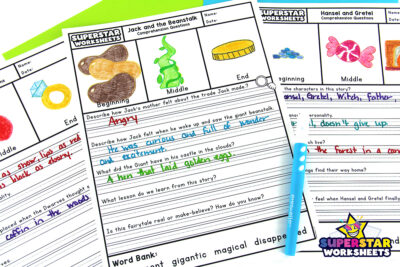 SUPERSTAR
WORKSHEETS
Jack and the Beanstalk
Comprehension Questions
Name:
Date:
Beginning
Middle
End
Describe how Jack's mother felt about the trade Jack made?
Angry
Describe how Jack felt when he woke up and saw the giant beanstalk.
He was curious and full of wonder
and excitement.
What did the Giant have in his castle in the clouds?
A hen that laid golden eggs.
What lesson do we learn from this story?
Is this fairytale real or make-believe? How do you know?
Word Bank:
gigantic magical disappeared
Name:
Date:
Middle
End
as snow, lips as red
as black as ebony.
placed when the Dwarves thought
coffin in the woods
SUPERSTAR
WORKSHEETS
Hansel and Gretel
Comprehension Questions
Name:
Date:
Beginning
Middle
End
the characters in this story?
Hansel, Gretel, Witch, Father
personality.
doesn't give up.
the Forest in a
things find their way home?
feel when Hansel and Gretel finally
SUPERSTAR
WORKSHEETS